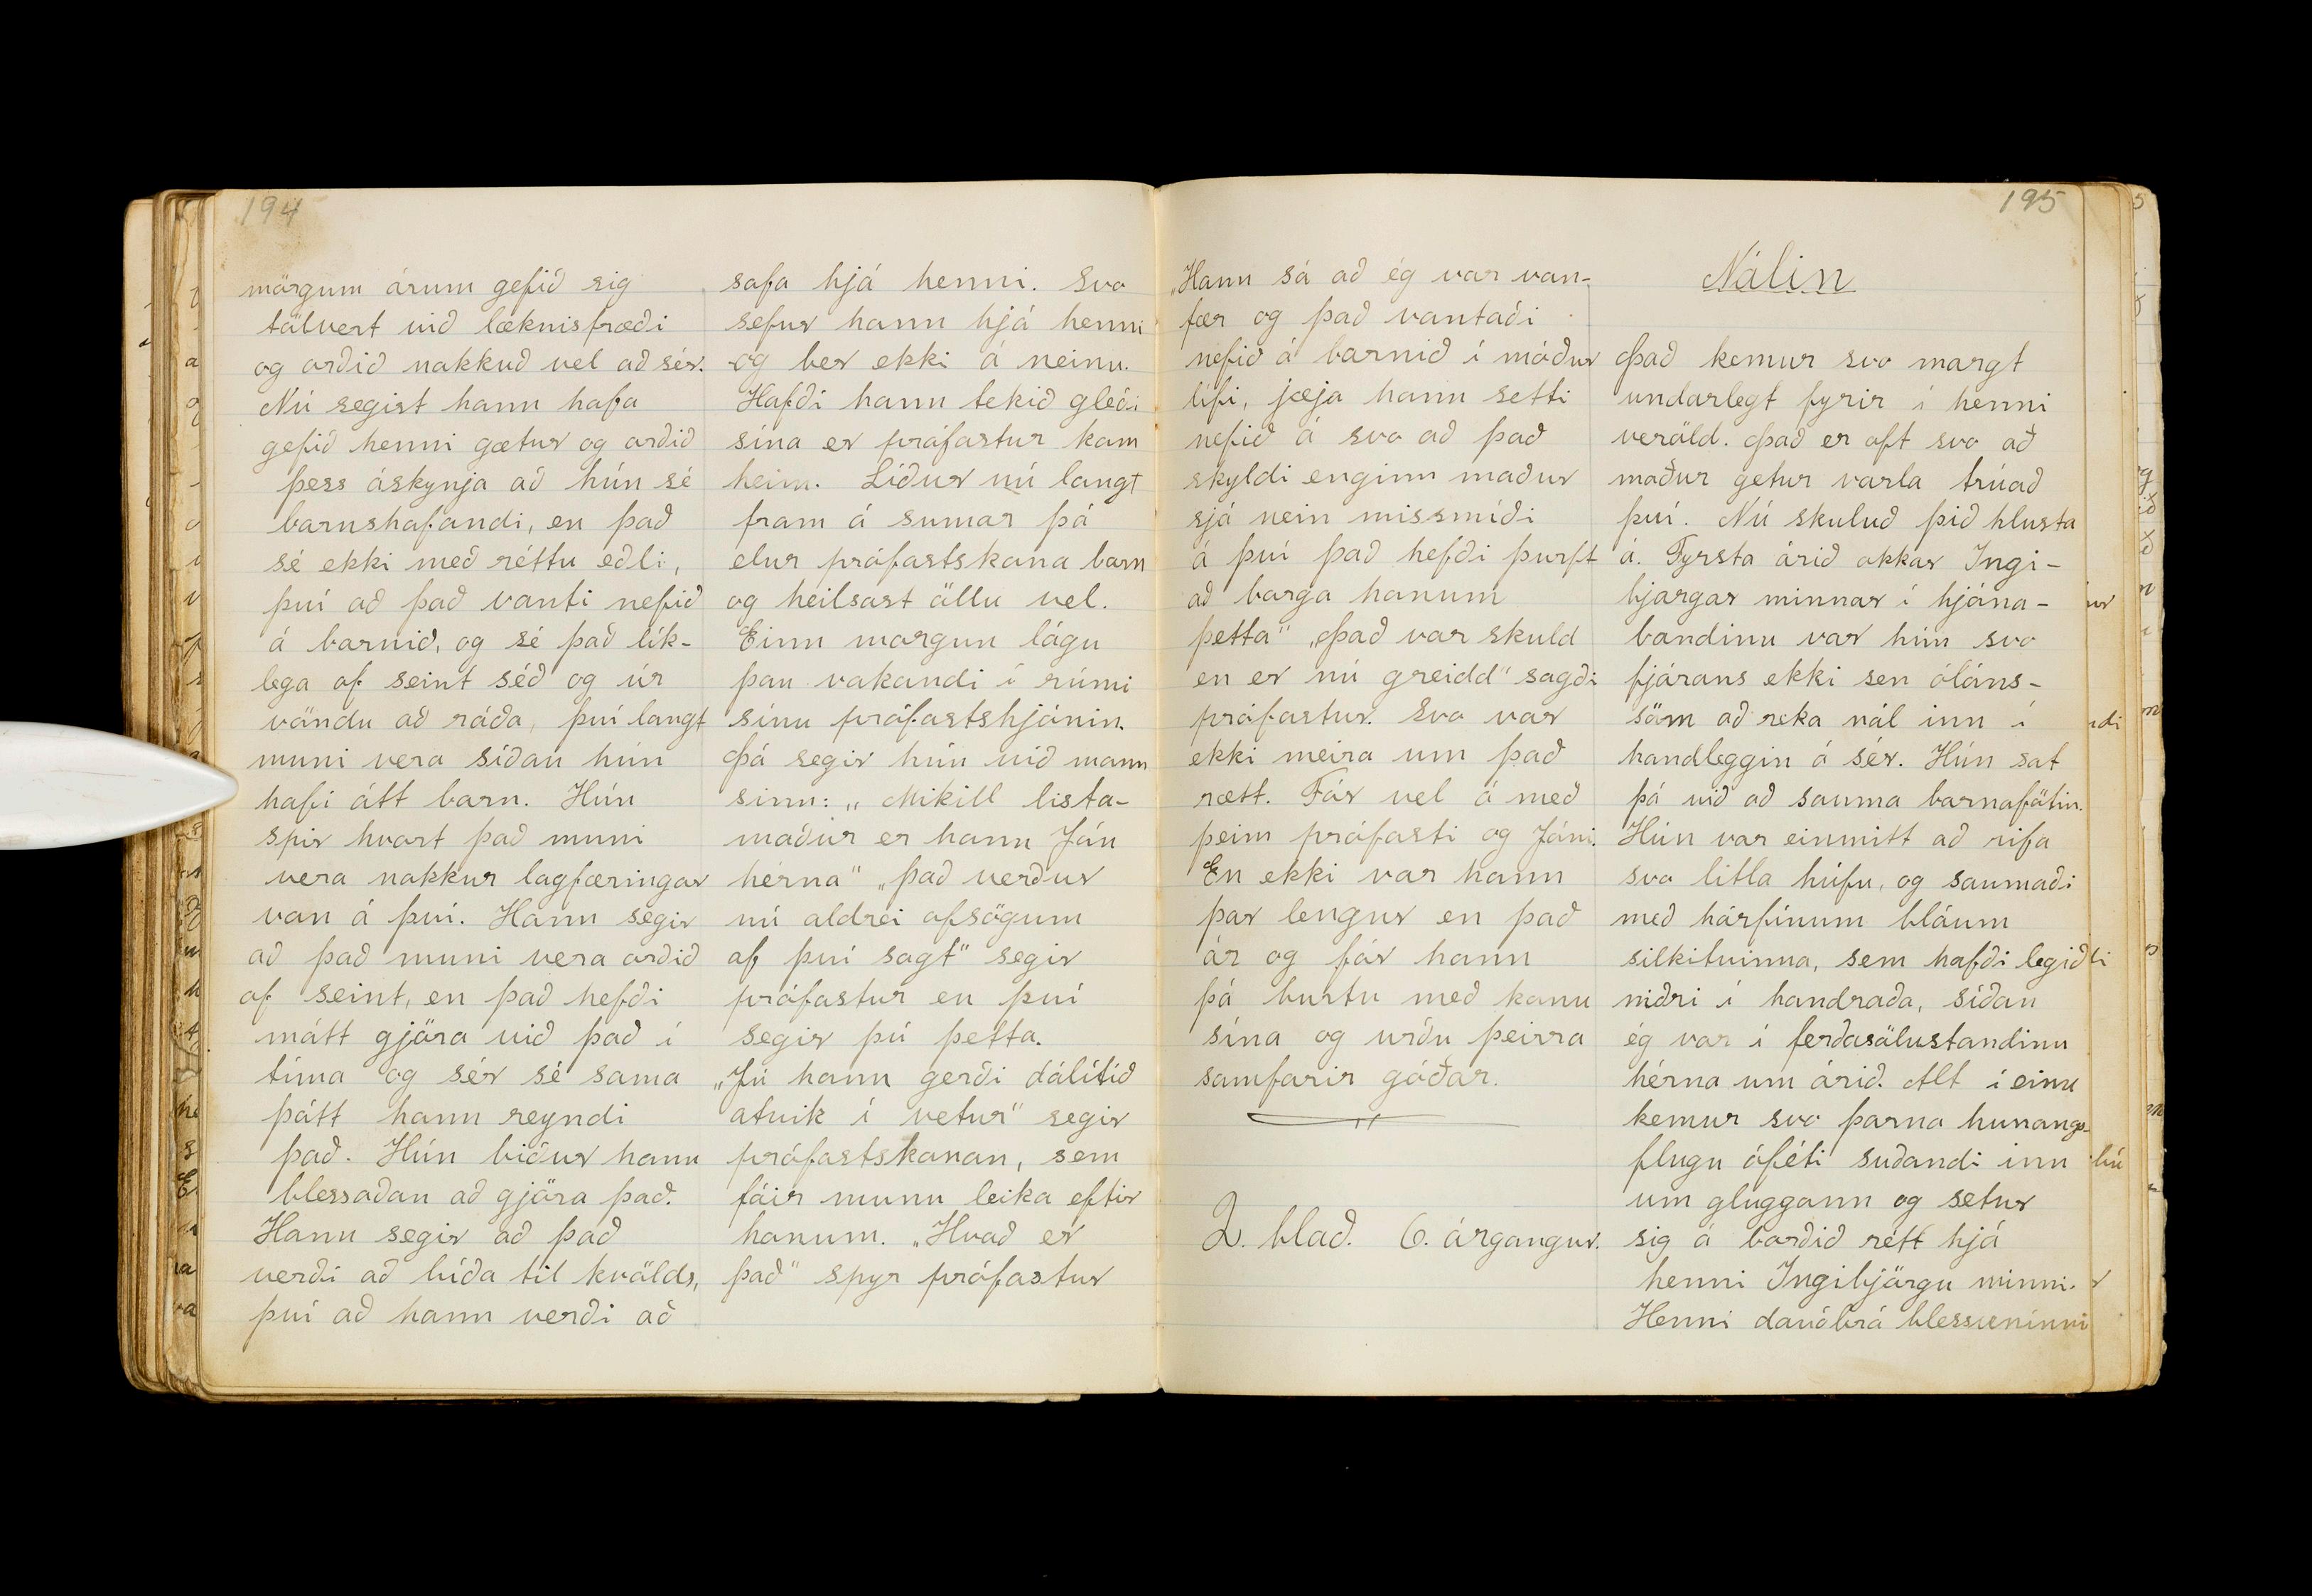 194
märgum árum gefið sig
tälvert við læknisfræði
og orðið nokkuð vel að sér.
Nú segist hann hafa
gefið henni gætur og orðið
þess áskynja að hún sé
barnshafandi, en það
sé ekki með réttu eðli,
því að það vanti nefið
á barnið, og sé það lík-
lega of seint séð og úr
vändu að ráða, því langt
muni vera síðan hún
hafi átt barn. Hún
spir hvort það muni
vera nokkur lagfæringar
von á því. Hann segir
að það muni vera orðið
of seint, en það hefði
mátt gjära við það í
tíma og sér sé sama
þótt hann reyndi
það. Hún biður hann
blessaðan að gjära það.
Hann segir að það
verði að bíða til kvälds,
því að hann verði að
sofa hjá henni. Svo
sefur hann hjá henni
og ber ekki á neinu.
Hafði hann tekið gleði
sína er prófastur kom
heim. Líður nú langt
fram á sumar þá
elur prófastskona barn
og heilsast ällu vel.
Einn morgun lágu
þau vakandi í rúmi
sínu prófastshjónin.
Þá segir hún við mann
sinn: „Mikill lista-
maður er hann Jón
hérna" „það verður
nú aldrei ofsögum
af því sagt" segir
prófastur en því
segir þú þetta.
„Jú hann gerði dálítið
atvik í vetur" segir
prófastskonan, sem
fáir munu leika eftir
honum. „Hvað er
það" spyr prófastur
195
„Hann sá að ég var van-
fær og það vantaði
nefið á barnið í móður
lífi, jæja hann setti
nefið á svo að það
skyldi enginn maður
sjá nein missmíði
á því það hefði þurft
að borga honum
þetta" „Það var skuld
en er nú greidd" sagði
prófastur. Svo var
ekki meira um það
rætt. Fór vel á með
þeim prófasti og Jóni.
En ekki var hann
þar lengur en það
ár og fór hann
þá burtu með konu
sína og urðu þeirra
samfarir góðar.
2. blað. 6. árgangur.
Nálin
Það kemur svo margt
undarlegt fyrir í henni
veräld. Það er oft svo að
maður getur varla trúað
því. Nú skuluð þið hlusta
á. Fyrsta árið okkar Ingi-
bjargar minnar í hjóna-
bandinu var hún svo
fjárans ekki sen óláns-
säm að reka nál inn í
handleggin á sér. Hún sat
þá við að sauma barnafätin.
Hún var einmitt að rifa
svo litla húfu, og saumaði
með hárfínum bláum
silkitvinna, sem hafði legið
niðri í handraða, síðan
ég var í ferðasälustandinu
hérna um árið. Alt í einu
kemur svo þarna hunangs-
flugu óféti suðandi inn
um gluggann og setur
sig á borðið rétt hjá
henni Ingibjärgu minni.
Henni dauðbrá blessuninni